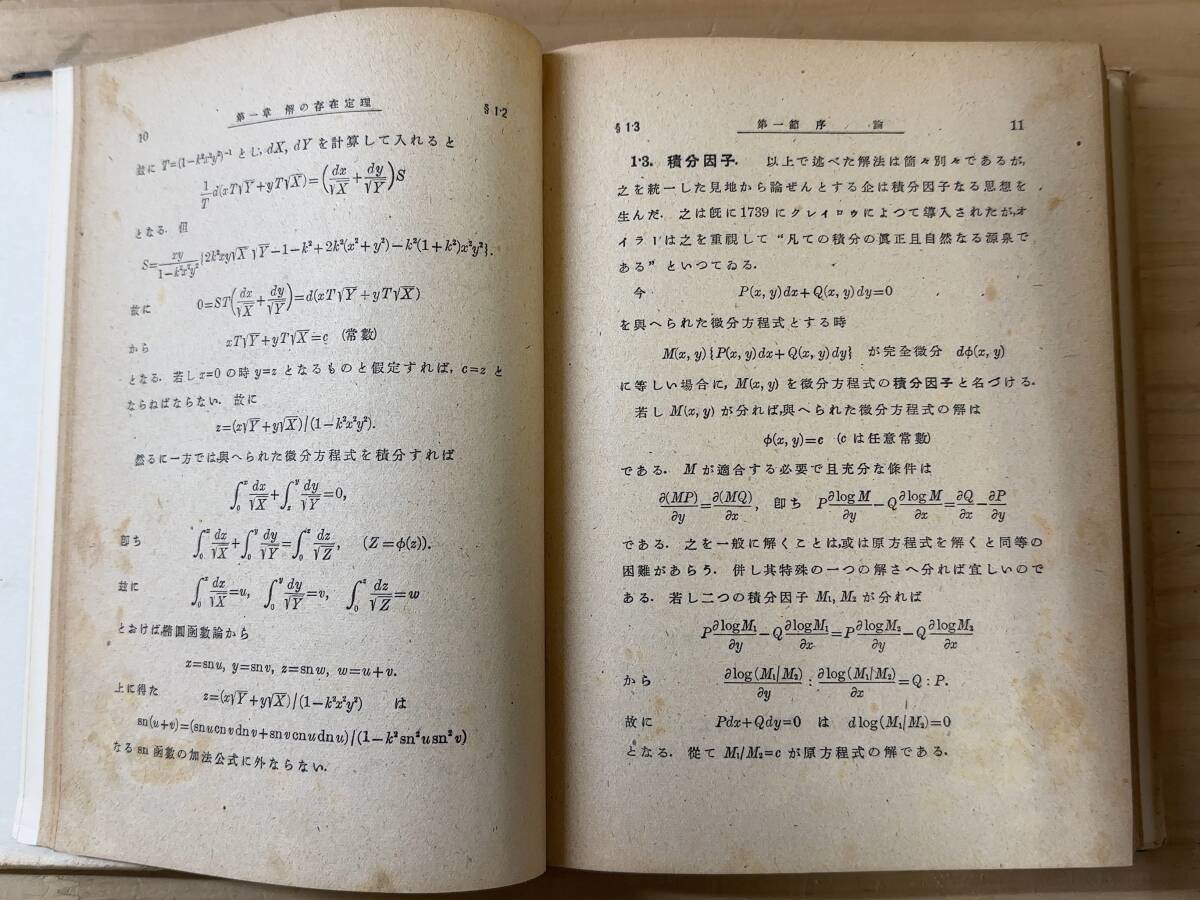 10
第一章 解の存在定理
§1·2
玆に T=(1−k²x²y²)⁻¹ とし, dX, dY を計算して入れると
1/T d(xT√Y+yT√X)=(dx/√X+dy/√Y)S
となる. 但
S=xy/(1−k²x²y²){2k²xy√X√Y−1−k²+2k²(x²+y²)−k²(1+k²)x²y²}.
故に 0=ST(dx/√X+dy/√Y)=d(xT√Y+yT√X)
から xT√Y+yT√X=c (常數)
となる. 若し x=0 の時 y=z となるものと假定すれば, c=z と
ならねばならない. 故に
z=(x√Y+y√X)/(1−k²x²y²).
然るに一方では,與へられた微分方程式を積分すれば
∫₀ˣ dx/√X+∫_z^y dy/√Y=0,
卽ち ∫₀ˣ dx/√X+∫₀ʸ dy/√Y=∫₀ᶻ dz/√Z, (Z=ϕ(z)).
玆に ∫₀ˣ dx/√X=u, ∫₀ʸ dy/√Y=v, ∫₀ᶻ dz/√Z=w
とおけば,橢圓函數論から
x=sn u, y=sn v, z=sn w, w=u+v.
上に得た z=(x√Y+y√X)/(1−k²x²y²) は
sn(u+v)=(sn u cn v dn v+sn v cn u dn u)/(1−k² sn² u sn² v)
なる sn 函數の加法公式に外ならない.
§1·3
第一節 序 論
11
1·3. 積分因子. 以上で述べた解法は箇々別々であるが,
之を統一した見地から論ぜんとする企は積分因子なる思想を
生んだ. 之は旣に1739にクレイロウによつて導入されたが,オ
イラーは之を重視して“凡ての積分の眞正且自然なる源泉で
ある”といつてゐる.
今 P(x, y)dx+Q(x, y)dy=0
を與へられた微分方程式とする時
M(x, y){P(x, y)dx+Q(x, y)dy} が完全微分 dϕ(x, y)
に等しい場合に, M(x, y) を微分方程式の積分因子と名づける.
若し M(x, y) が分れば,與へられた微分方程式の解は
ϕ(x, y)=c (c は任意常數)
である. M が適合する必要で且充分な條件は
∂(MP)/∂y=∂(MQ)/∂x, 卽ち P ∂log M/∂y−Q ∂log M/∂x=∂Q/∂x−∂P/∂y
である. 之を一般に解くことは,或は原方程式を解くと同等の
困難があらう. 併し其特殊の一つの解さへ分れば宜しいので
ある. 若し二つの積分因子 M₁, M₂ が分れば
P ∂log M₁/∂y−Q ∂log M₁/∂x=P ∂log M₂/∂y−Q ∂log M₂/∂x
から ∂log(M₁/M₂)/∂y : ∂log(M₁/M₂)/∂x=Q : P.
故に Pdx+Qdy=0 は d log(M₁/M₂)=0
となる. 從て M₁/M₂=c が原方程式の解である.